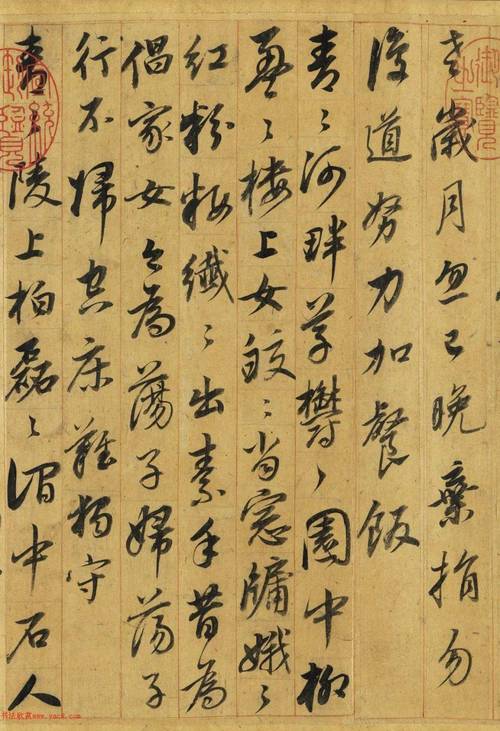 老歲月忽已晚棄捐勿
復道努力加餐飯
青〻河畔草鬱〻園中柳
盈〻樓上女皎〻當窓牖娥〻
紅粉粧纖〻出素手昔為
倡家女今為蕩子婦蕩子
行不歸空床難獨守
青〻陵上柏磊〻澗中石人
书法欣赏